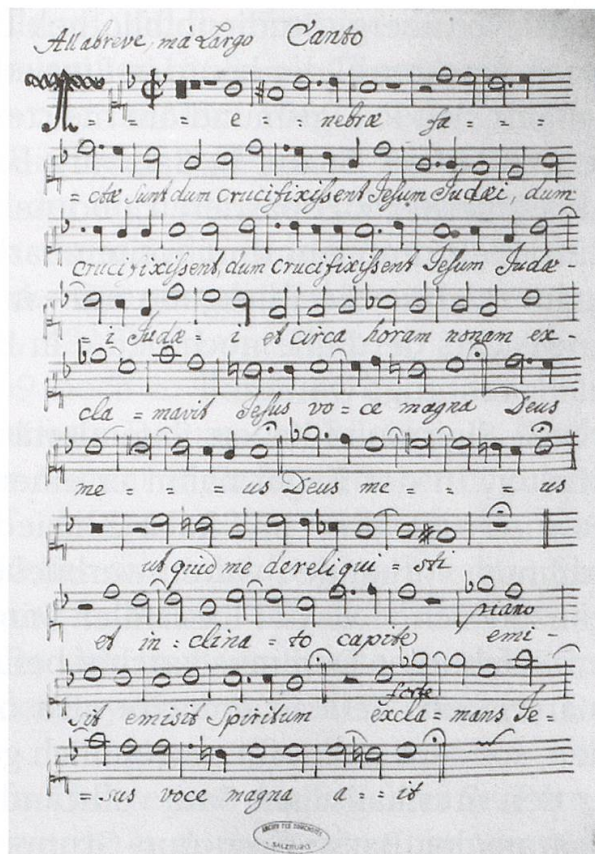 Allabreve, mà Largo Canto
T = = e = nebræ fa = =
= ctæ sunt dum crucifixissent Jesum Judæi, dum
crucifixissent, dum crucifixissent Jesum Judæ-
= i Judæ = i et circa horam nonam ex-
cla = mavit Jesus vo = ce magna Deus
me = = = us Deus me = = = us
ut quid me dereliqui = sti
et in = clina = to capite piano emi-
sit emisit Spiritum forte excla = mans Je-
= sus voce magna a = = it
SALZBURG